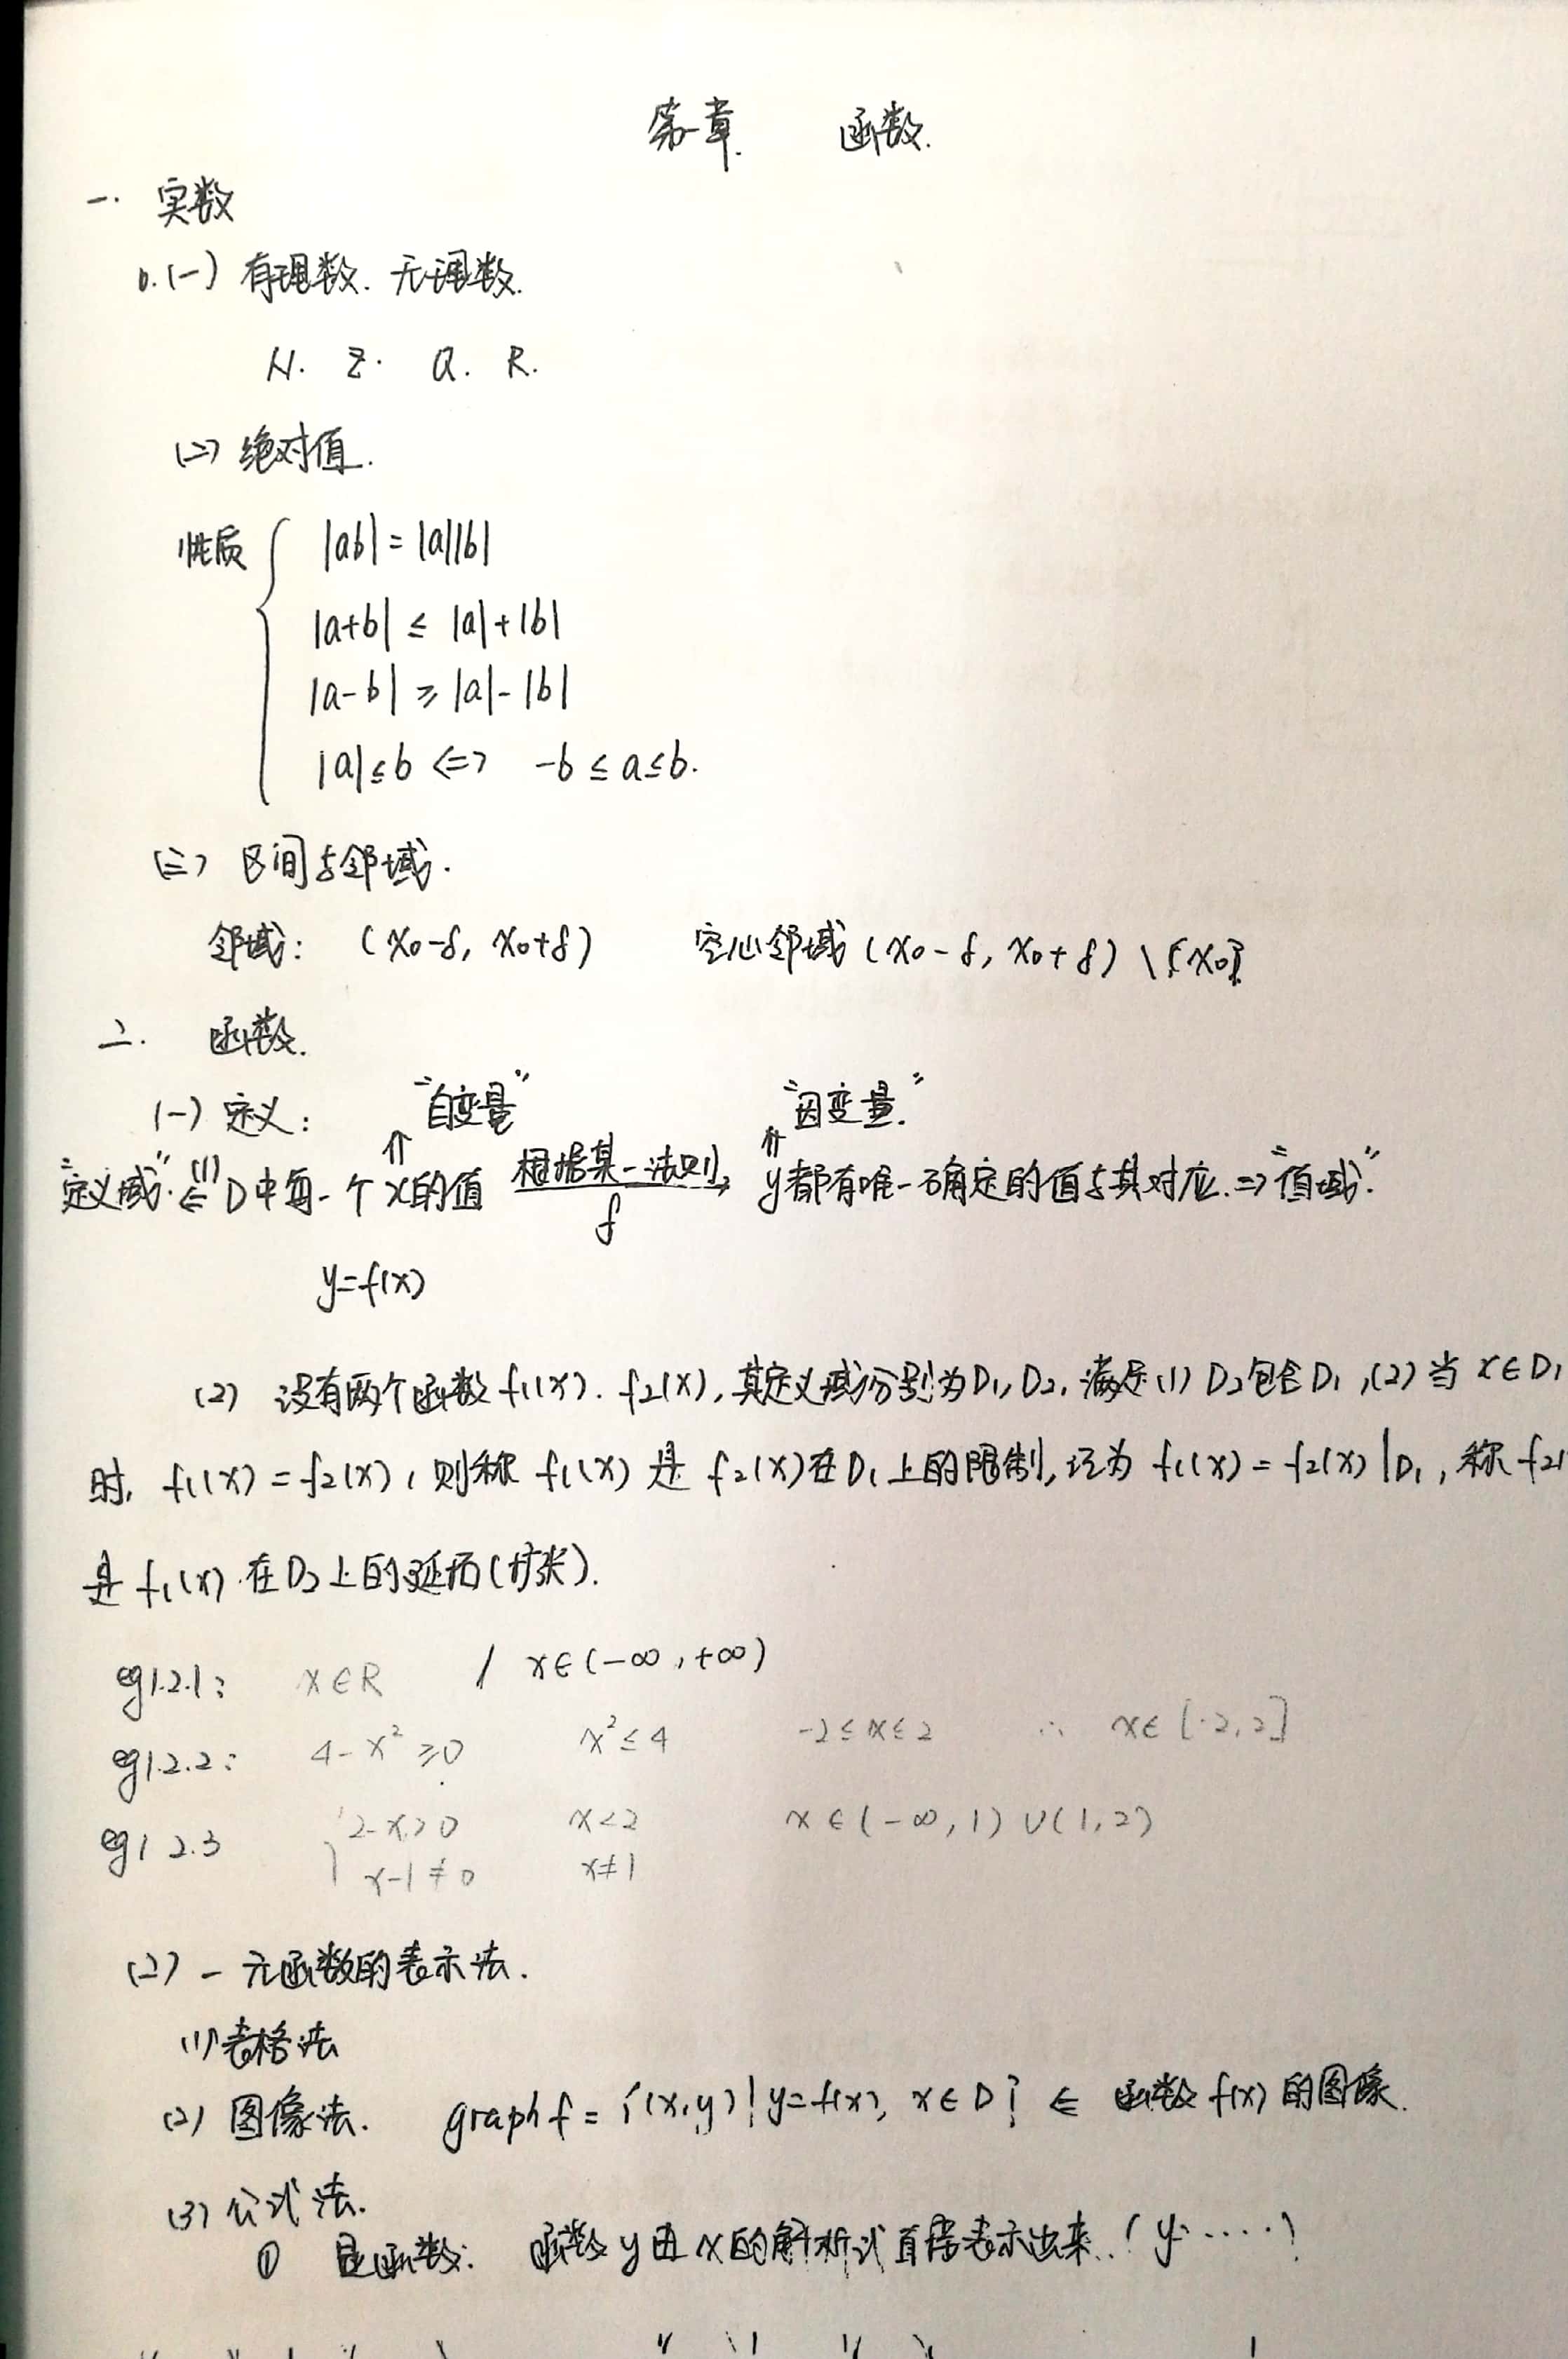 第一章 函数.
一. 实数
(一) 有理数. 无理数.
N. Z. Q. R.
(二) 绝对值.
性质 { |ab| = |a||b|
|a+b| ≤ |a|+|b|
|a-b| ≥ |a|-|b|
|a|≤b <=> -b ≤ a ≤ b.
(三) 区间与邻域.
邻域: (x₀-δ, x₀+δ) 空心邻域 (x₀-δ, x₀+δ) \ {x₀}
二. 函数.
(一) 定义: "自变量" "因变量."
⇑ ⇑
"定义域". ⇐ (1) D中每一个 x的值 根据某一法则 f → y都有唯一确定的值与其对应. ⇒ "值域".
y=f(x)
(2) 设有两个函数 f₁(x). f₂(x), 其定义域分别为D₁, D₂, 满足 (1) D₂包含D₁, (2) 当 x∈D₁
时, f₁(x) = f₂(x), 则称 f₁(x) 是 f₂(x)在D₁上的限制, 记为 f₁(x) = f₂(x)|D₁, 称 f₂(
是 f₁(x) 在D₂上的延拓(扩张).
eg1.2.1: x∈R / x∈(-∞, +∞)
eg1.2.2: 4-x² ≥0 x² ≤ 4 -2≤x≤2 ∴ x∈[-2,2]
eg1 2.3 { 2-x>0 x<2 x∈(-∞,1)∪(1,2)
x-1≠0 x≠1
(2) 一元函数的表示法.
(1) 表格法
(2) 图像法. graph f = {(x,y)|y=f(x), x∈D} ⇐ 函数 f(x) 的图像.
(3) 公式法.
① 显函数: 函数 y 由 x 的解析式直接表示出来. (y·····)